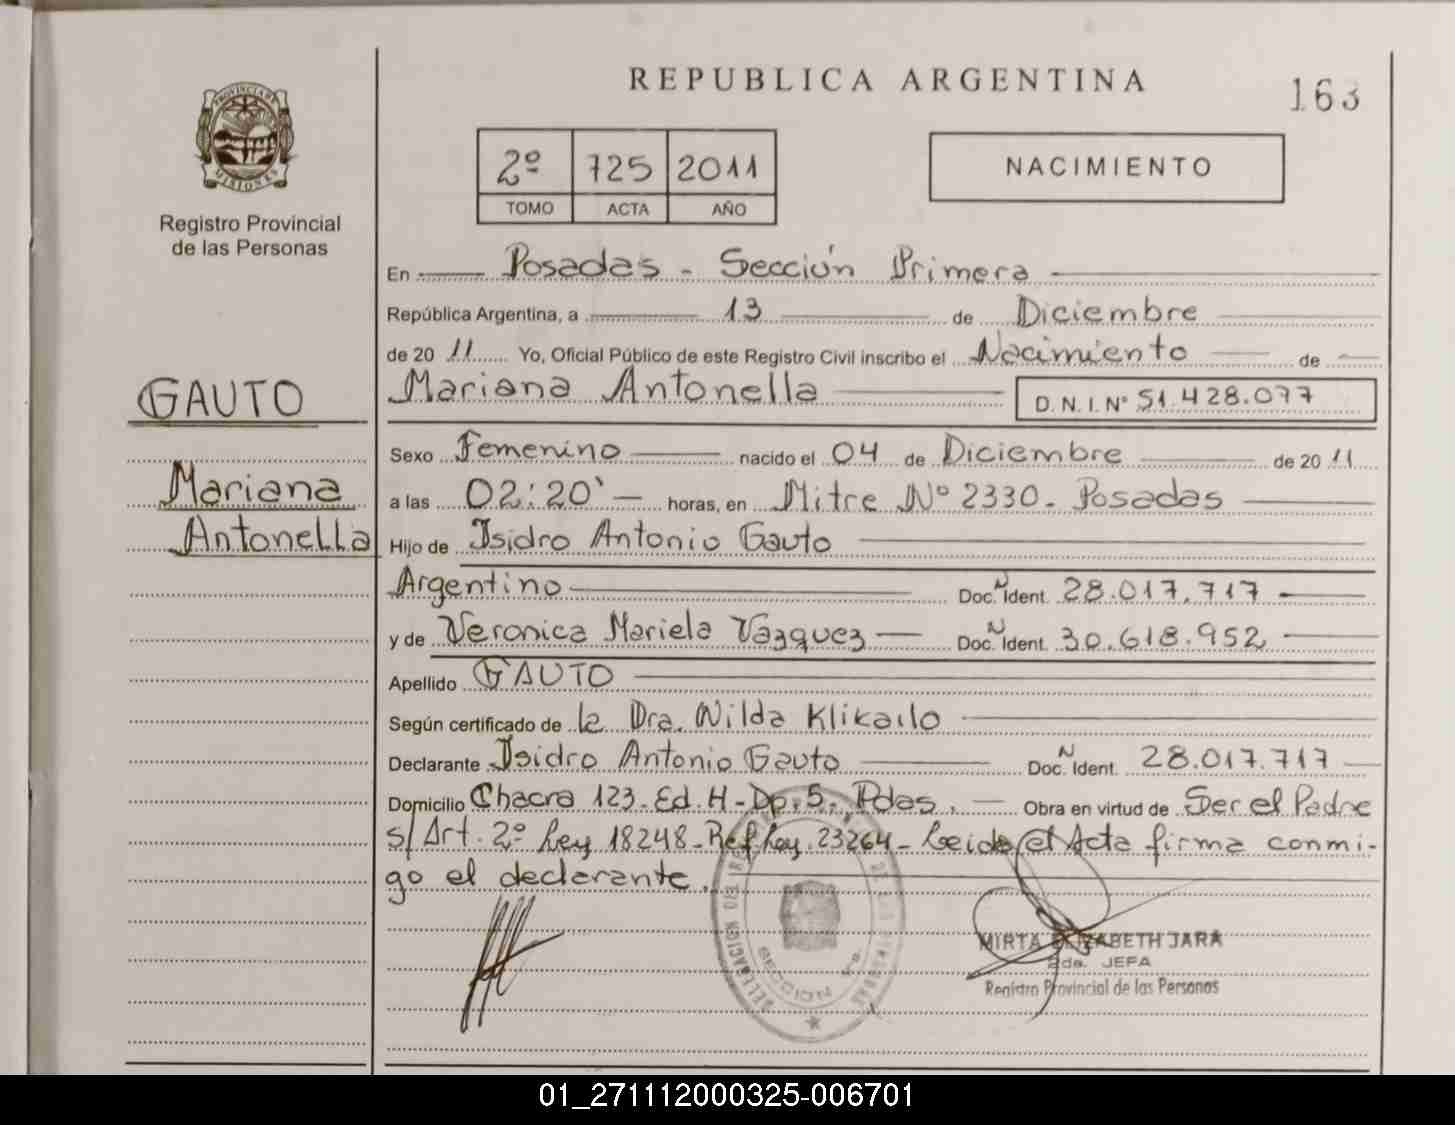 REPUBLICA ARGENTINA
163
PROVINCIA DE
MISIONES
Registro Provincial
de las Personas
2º 725 2011
TOMO ACTA AÑO
NACIMIENTO
En Posadas - Sección Primera
República Argentina, a 13 de Diciembre
de 2011 Yo, Oficial Público de este Registro Civil inscribo el Nacimiento de
Mariana Antonella D.N.I.Nº 51.428.077
GAUTO
Mariana
Antonella
Sexo Femenino nacido el 04 de Diciembre de 2011
a las 02:20' horas, en Mitre Nº 2330. Posadas
Hijo de Isidro Antonio Gauto
Argentino Doc. N Ident. 28.017.717
y de Veronica Mariela Vazquez Doc. N Ident. 30.618.952
Apellido GAUTO
Según certificado de la Dra. Nilda Klikailo
Declarante Isidro Antonio Gauto Doc. N Ident. 28.017.717
Domicilio Chacra 123. Ed. H - Dp. 5. Pdas. Obra en virtud de Ser el Padre
s/ Art. 2º Ley 18248 - Ref Ley 23264 - Leida el Acta firma conmi-
go el declarante.
DELEGACION DEL
SECCION
MIRTA ELIZABETH JARA
2da. JEFA
Registro Provincial de las Personas
01_271112000325-006701